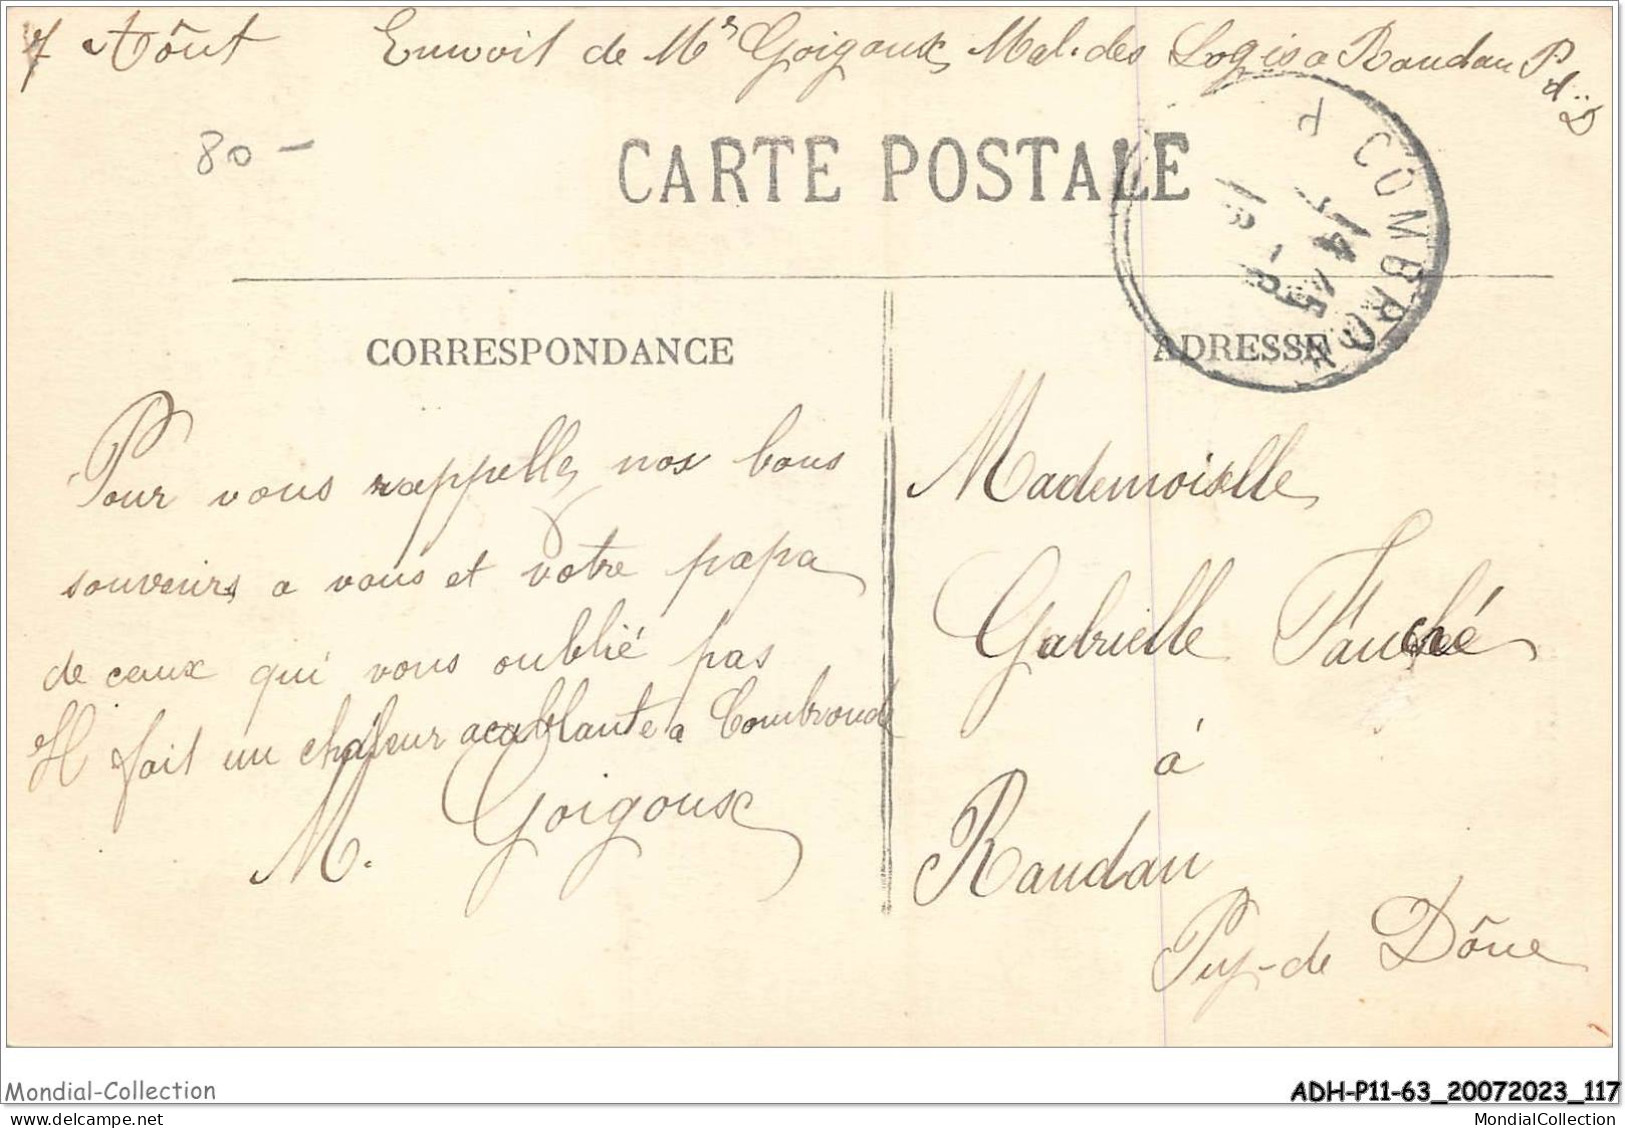 7 Aôut Envoit de Mr Goigoux, Mal. des Logis a Randan P d. D
80 -
CARTE POSTALE
COMBRONDE
CORRESPONDANCE
ADRESSE
Pour vous rappelles nos bons
souvenirs a vous et votre papa
de ceux qui vous oublié pas
Il fait un chaleur acablante a Combronde
M. Goigoux
Mademoiselle
Gabrielle Fauché
á
Randan
Puy-de Dône
Mondial-Collection
ADH-P11-63_20072023_117
MondialCollection